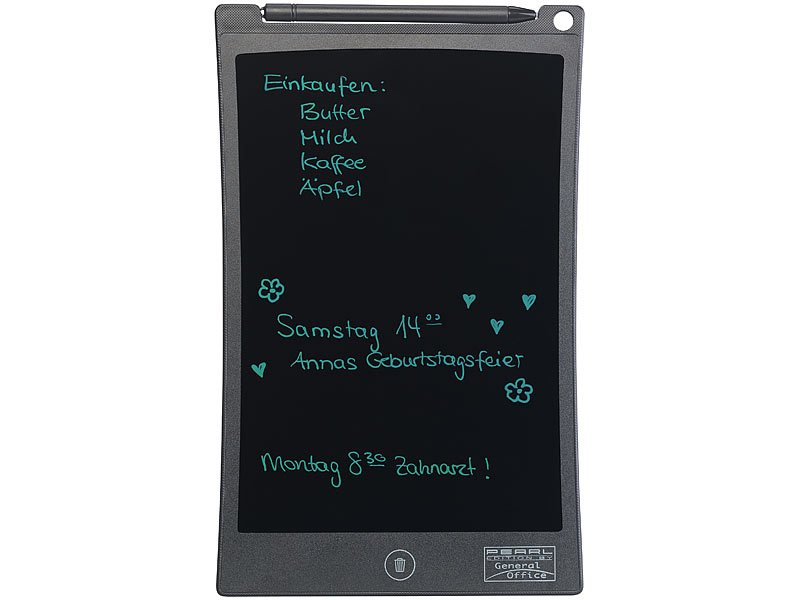 Einkaufen:
Butter
Milch
Kaffee
Äpfel
Samstag 14⁰⁰
Annas Geburtstagsfeier
Montag 8³⁰ Zahnarzt!
PEARL
EDITION BY
General
Office